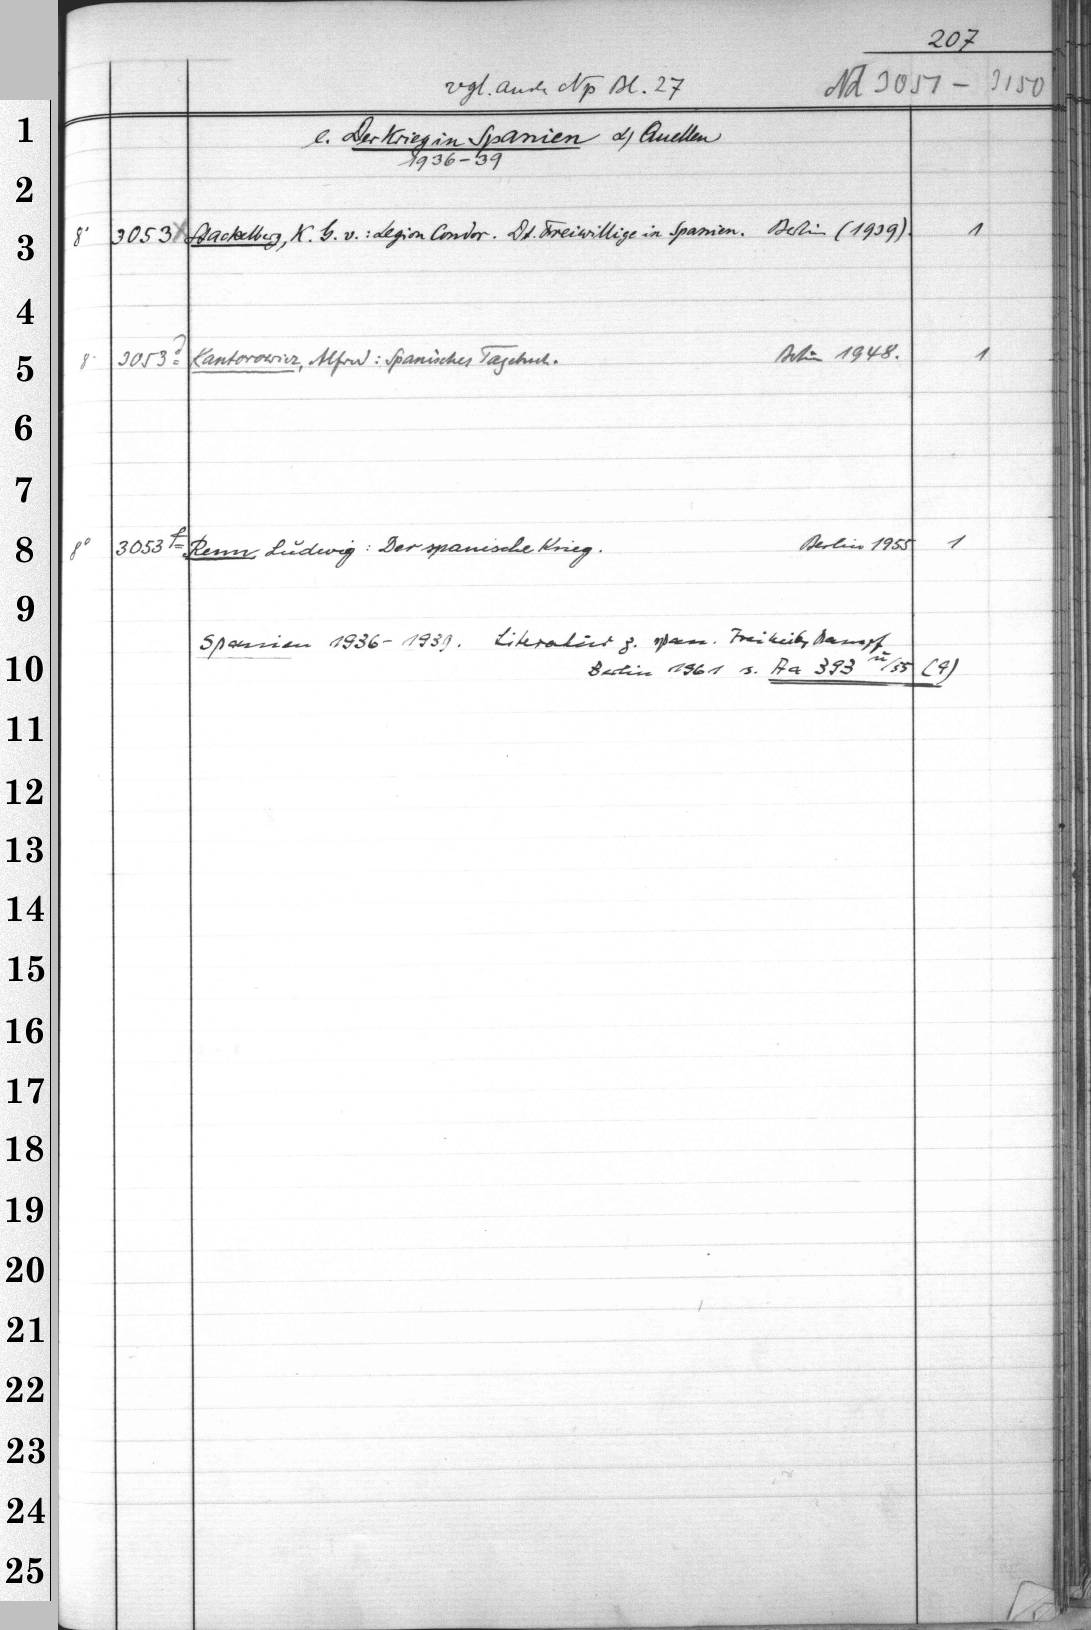 207
vgl. auch Np Bl. 27 Nd 3051 - 3150
1 e. Der Krieg in Spanien d) Quellen
1936-39
2
3 8° 3053 Stackelberg, K. G. v.: Legion Condor. Dt. Freiwillige in Spanien. Berlin (1939). 1
4
5 8° 3053 d Kantorowicz, Alfred: Spanisches Tagebuch. Berlin 1948. 1
6
7
8 8° 3053 f Renn, Ludwig: Der spanische Krieg. Berlin 1955 1
9
Spanien 1936-1939. Literatur z. span. Freiheitskampf
10 Berlin 1961 s. Aa 393 u/55 (9)
11
12
13
14
15
16
17
18
19
20
21
22
23
24
25